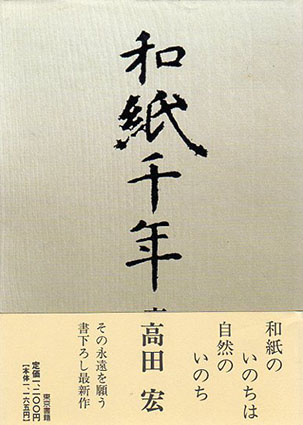 和紙千年
和紙の
いのちは
自然の
いのち
高田 宏
その永遠を願う
書下ろし最新作
定価一、二〇〇円
[本体一、一六五円]
東京書籍